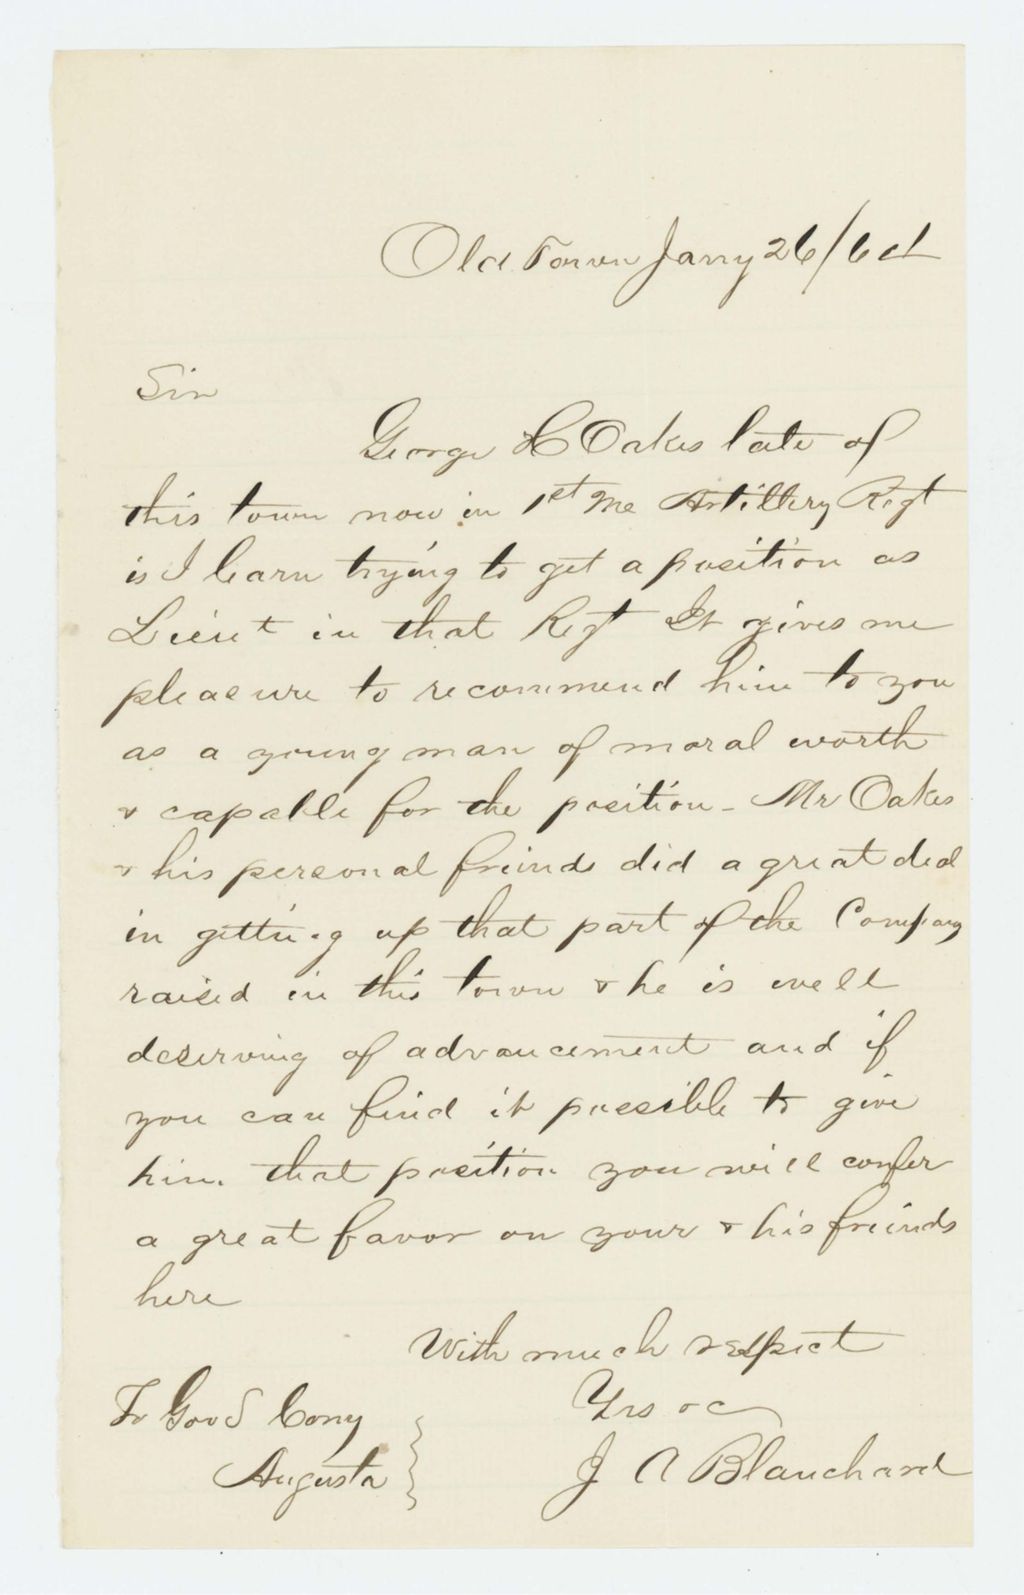 Old Town Jany 26/64
Sir
George H Oakes late of
this town now in 1st Me Artillery Regt
is I learn trying to get a position as
Lieut in that Regt It gives me
pleasure to recommend him to you
as a young man of moral worth
& capable for the position - Mr Oakes
& his personal friends did a great deal
in getting up that part of the Company
raised in this town & he is well
deserving of advancement and if
you can find it possible to give
him that position you will confer
a great favor on your & his friends
here
With much respect
Yrs &c
J A Blanchard
To Gov S Cony
Augusta